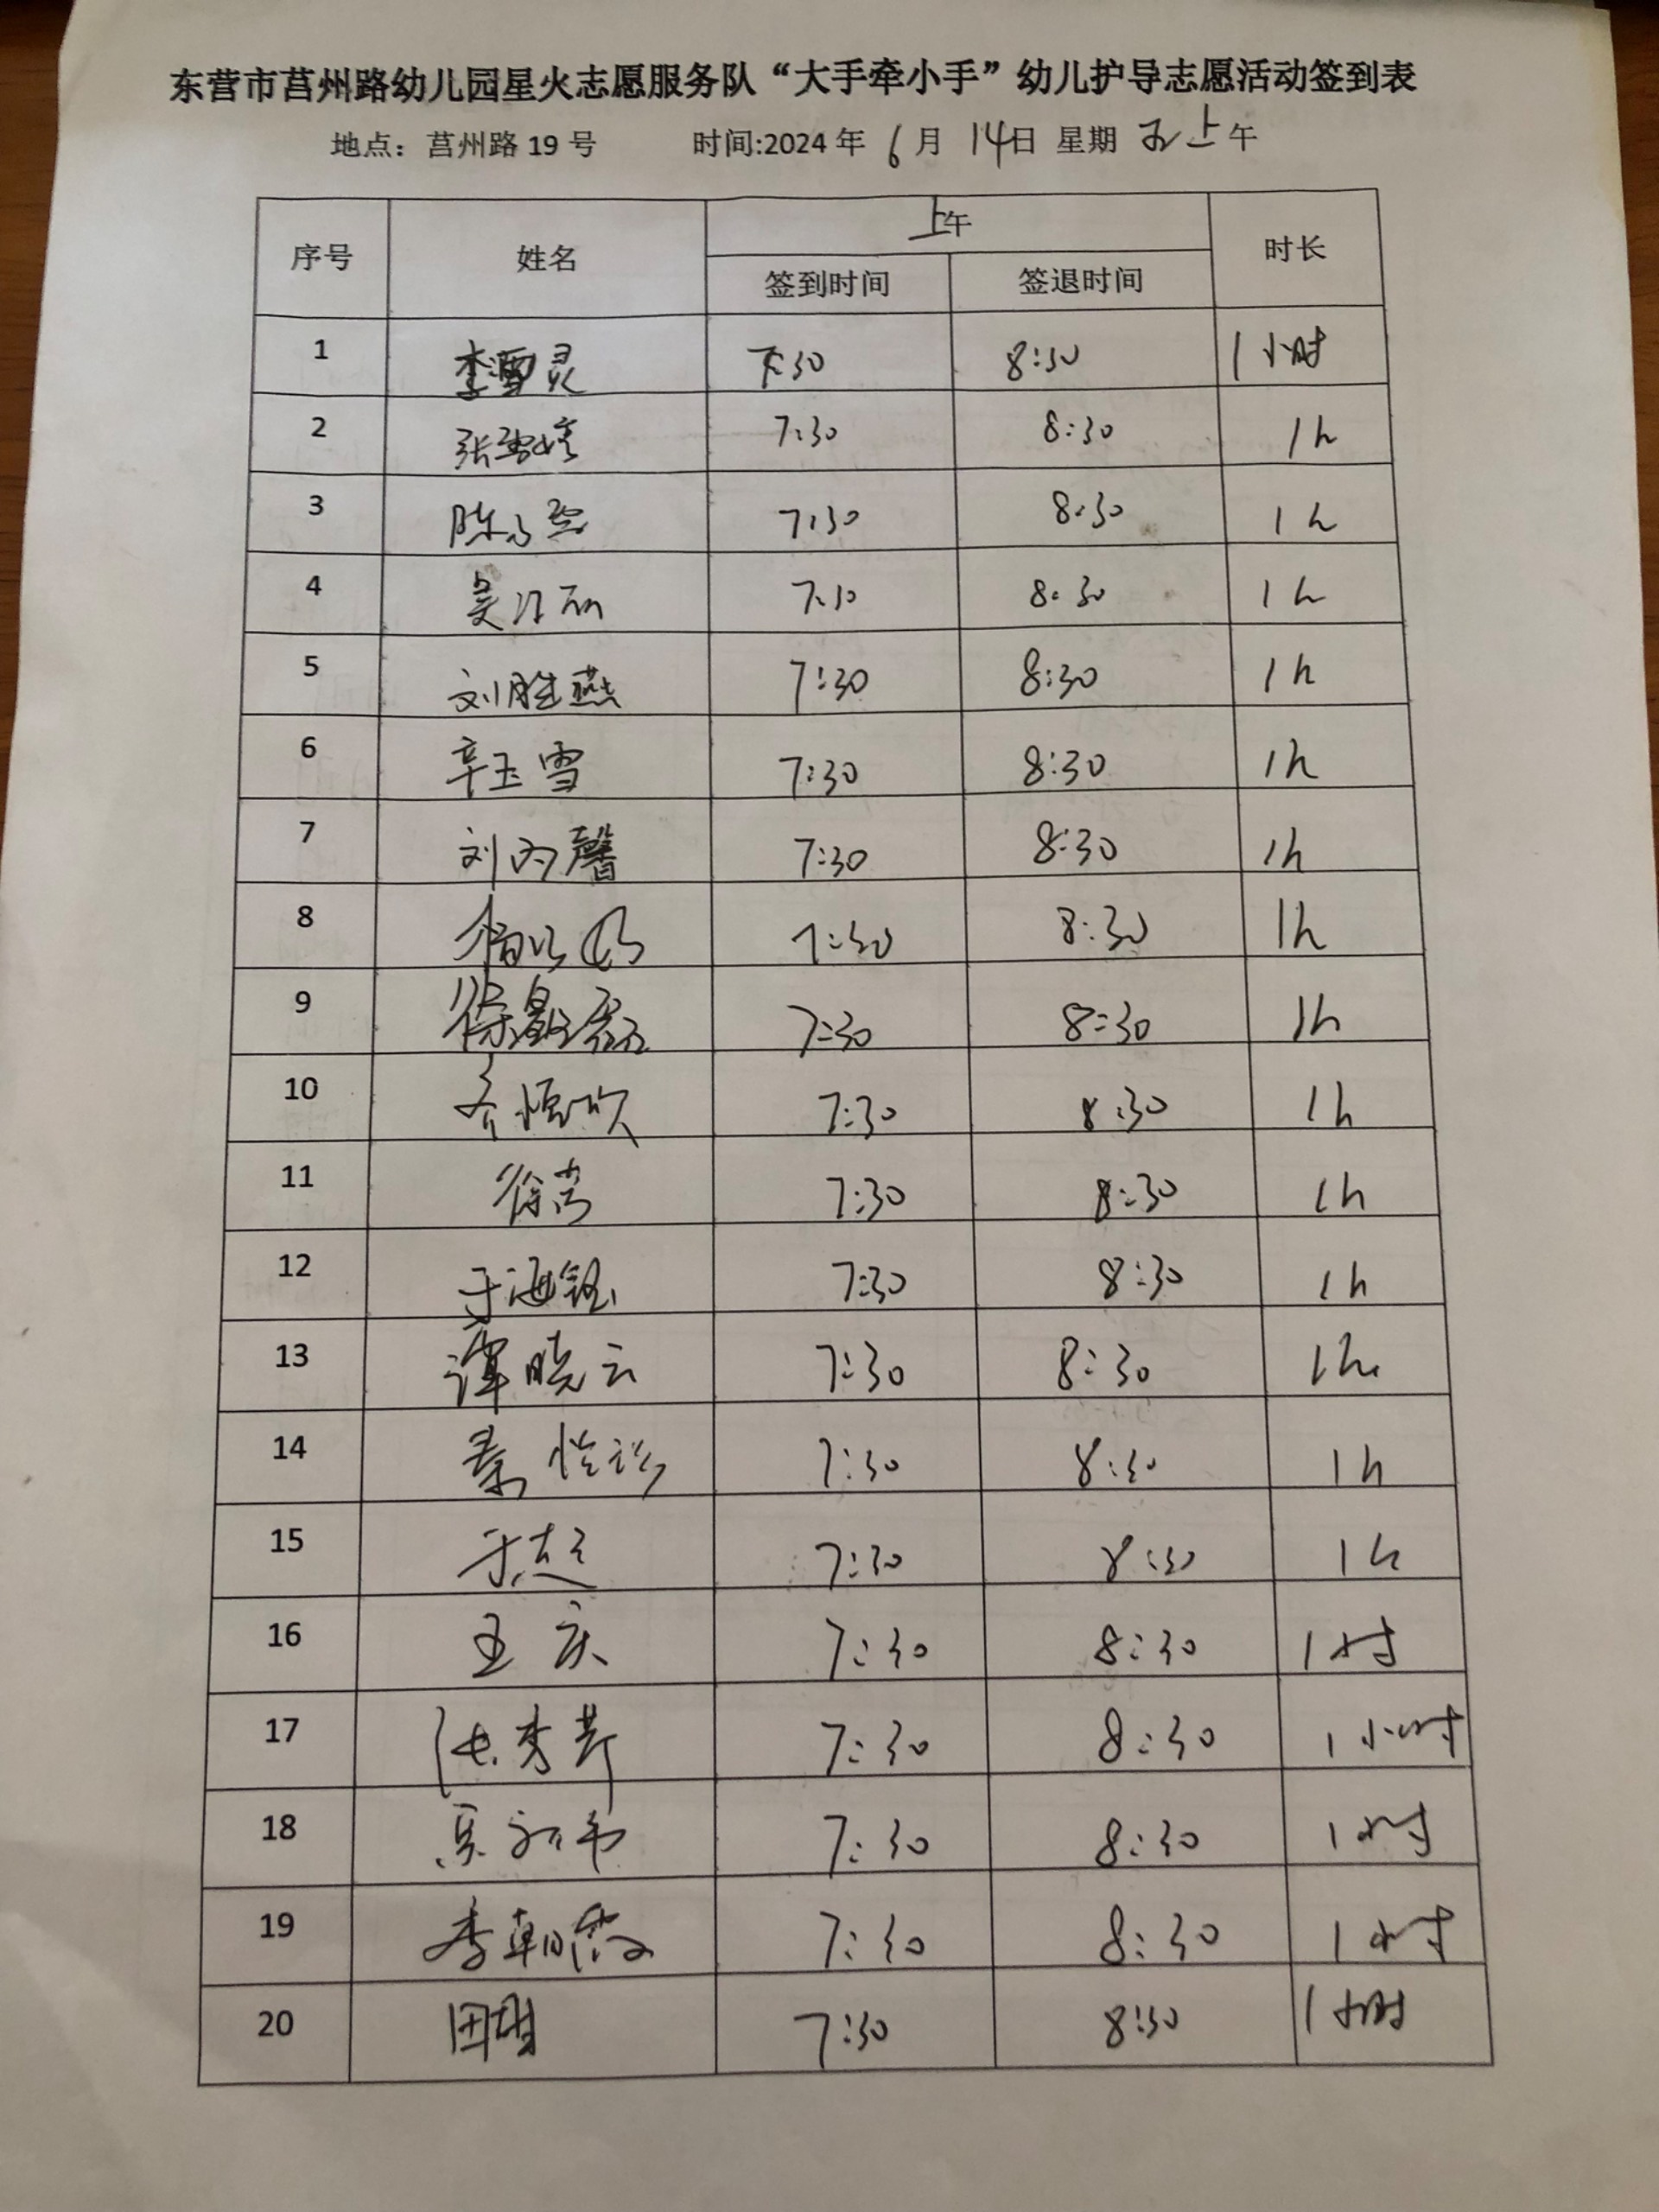 东营市莒州路幼儿园星火志愿服务队“大手牵小手”幼儿护导志愿活动签到表
地点：莒州路 19 号 时间:2024 年 6 月 14日 星期 五上午
序号 姓名 上午 时长
签到时间 签退时间
1 李雪灵 7:30 8:30 1小时
2 张雪婷 7:30 8:30 1h
3 陈 7:30 8:30 1h
4 吴 7:30 8:30 1h
5 刘胜燕 7:30 8:30 1h
6 辛玉雪 7:30 8:30 1h
7 刘雨馨 7:30 8:30 1h
8 7:30 8:30 1h
9 徐磊 7:30 8:30 1h
10 齐 7:30 8:30 1h
11 徐 7:30 8:30 1h
12 于海钰 7:30 8:30 1h
13 谭晓云 7:30 8:30 1h
14 秦 7:30 8:30 1h
15 于 7:30 8:30 1h
16 王庆 7:30 8:30 1小时
17 张秀芹 7:30 8:30 1小时
18 吴 7:30 8:30 1小时
19 李朝霞 7:30 8:30 1小时
20 田甜 7:30 8:30 1小时